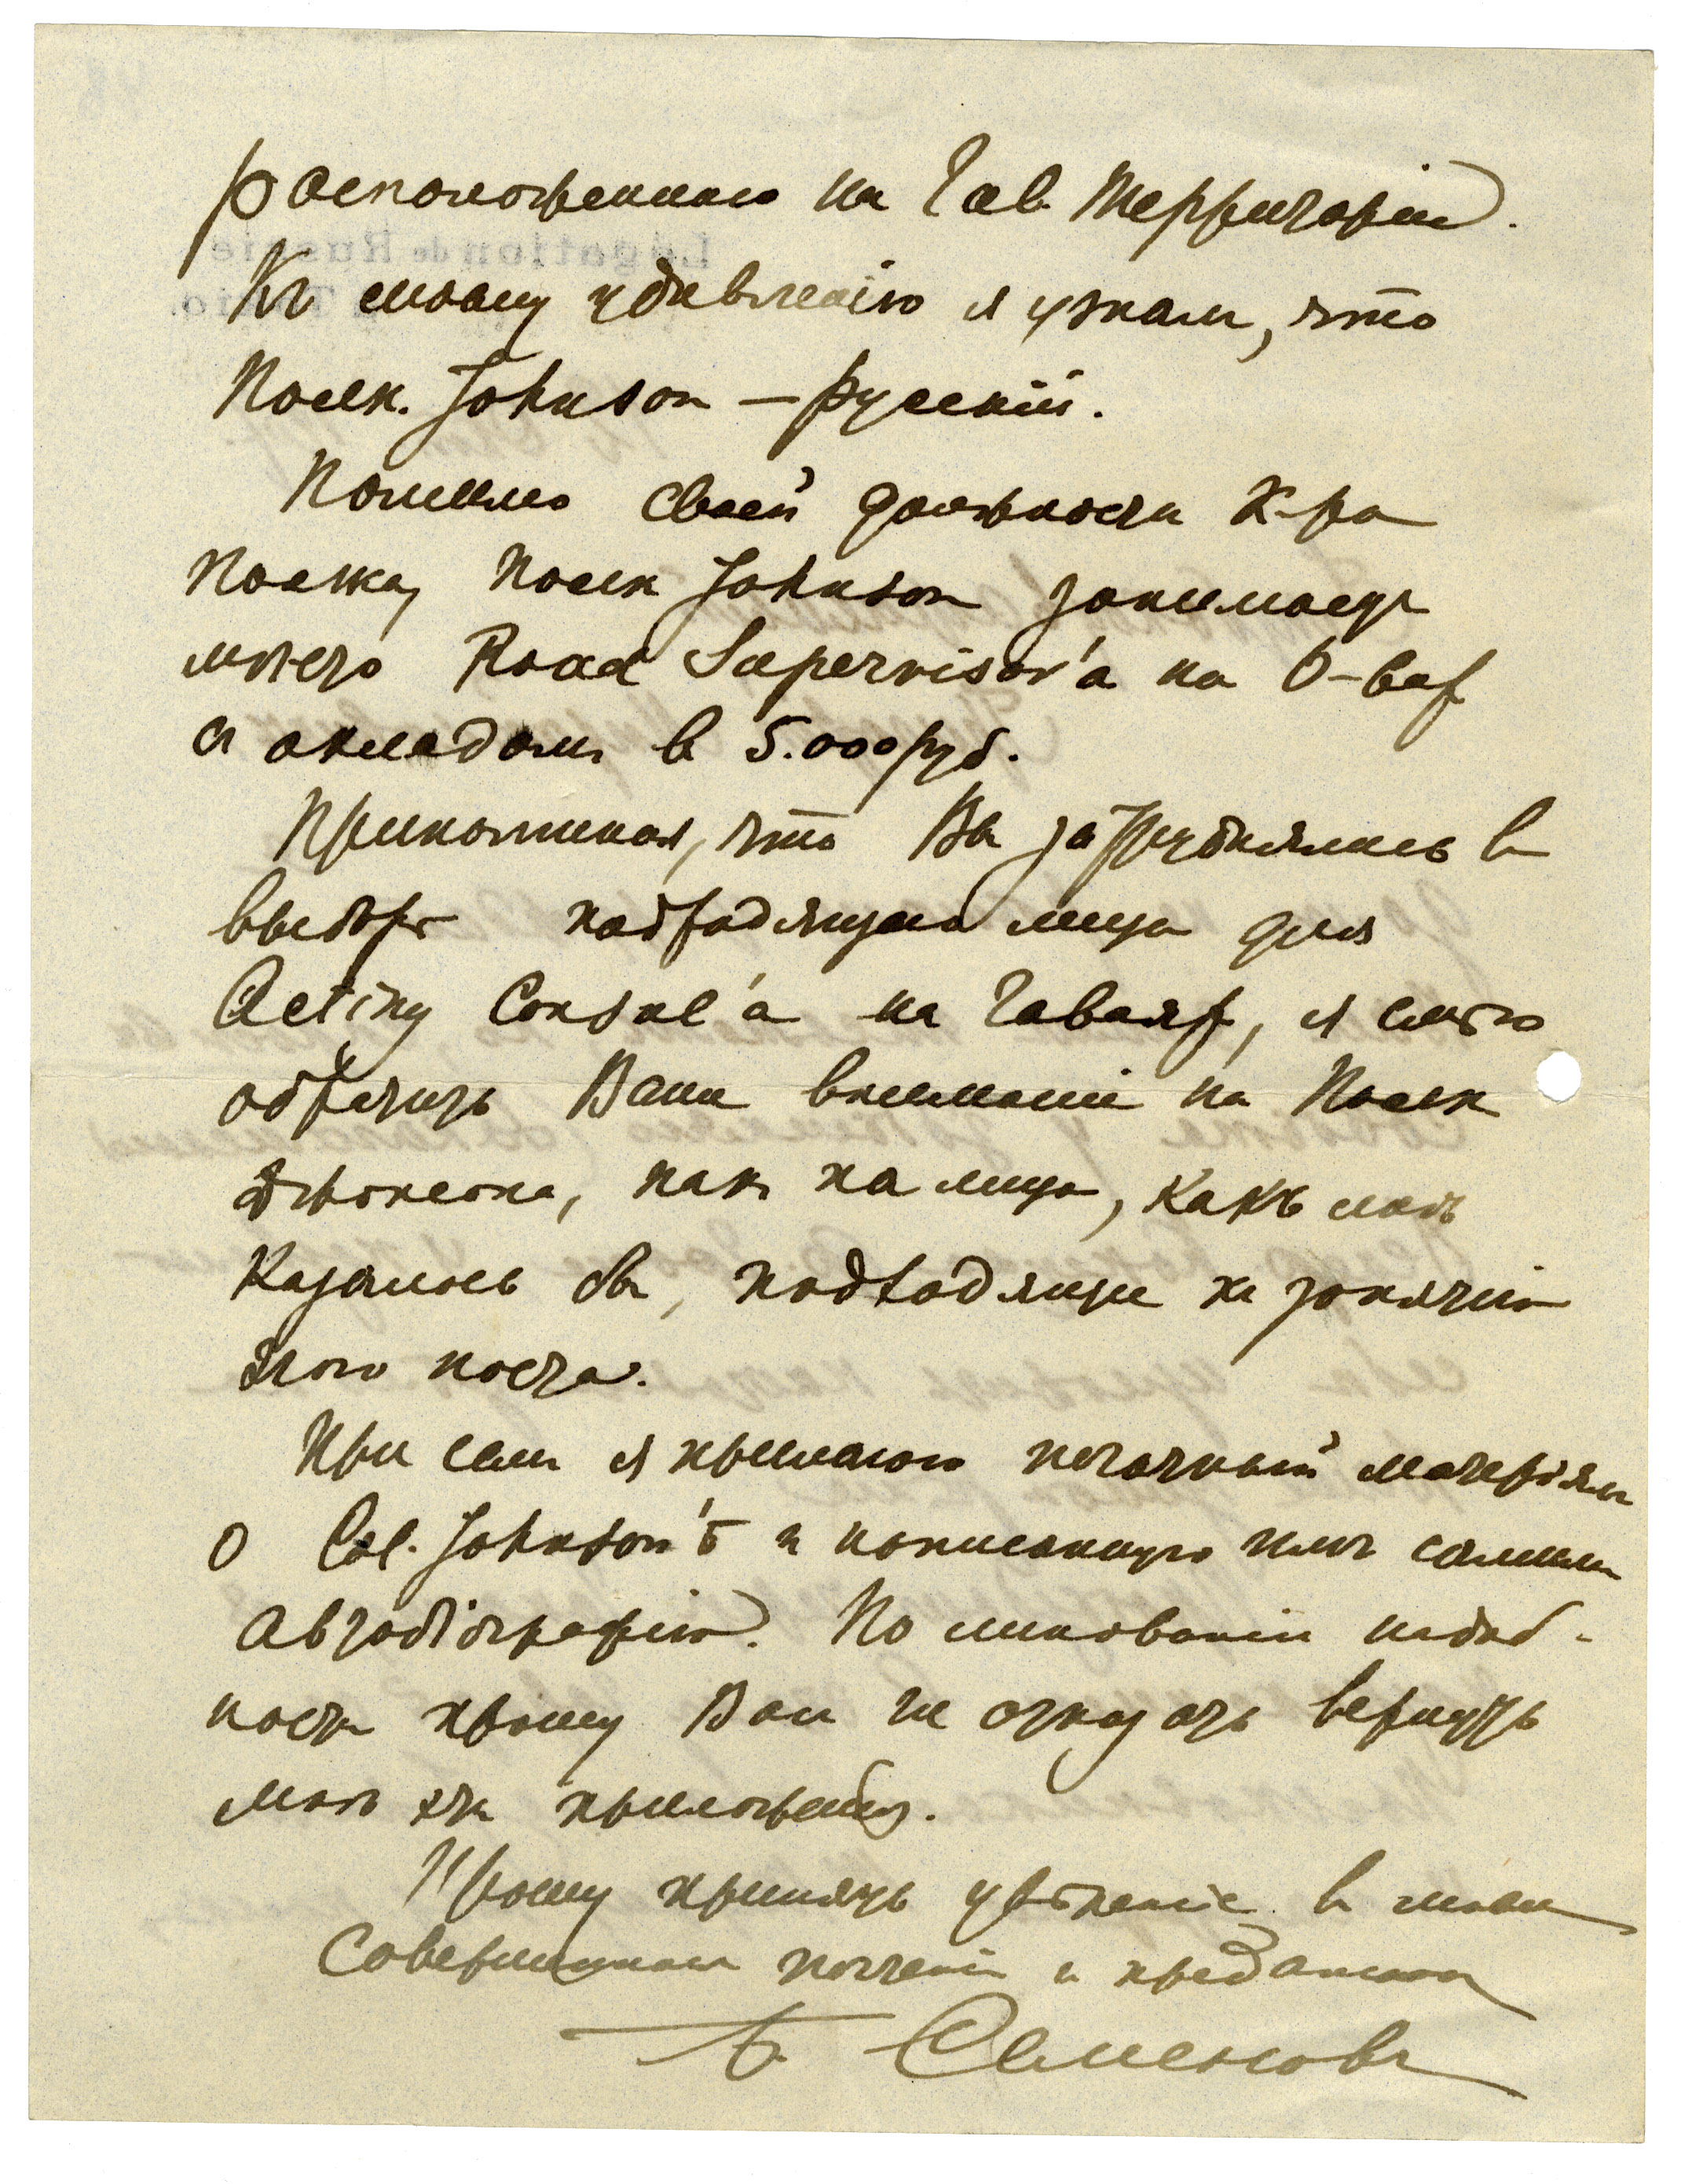 расположеннаго на Гав. Территорiи.
Къ моему удивленiю я узналъ, что
Полк. Johnson — русскiй.
Помимо своей должности К-ра
Полка, Полк Johnson занимаетъ
мѣсто Road Supervisor'а на О-вах
съ окладомъ в 5.000 руб.
Припоминая, что Вы затруднялись в
выборѣ подходящаго лица для
Acting Consul'а на Гаваях, я смѣю
обратить Ваше вниманiе на Полк
Джонсона, как на лицо, какъ мнѣ
казалось бы, подходящее къ занятiю
этого поста.
При семъ я прилагаю печатный матерiалъ
о Col. Johnson'ѣ и написанную имъ самимъ
автобiографiю. По минованiи надоб-
ности прошу Вас не отказать вернуть
мнѣ эти приложенiя.
Прошу принять увѣренiе в моем
совершенном почтенiи и преданности
Семеновъ